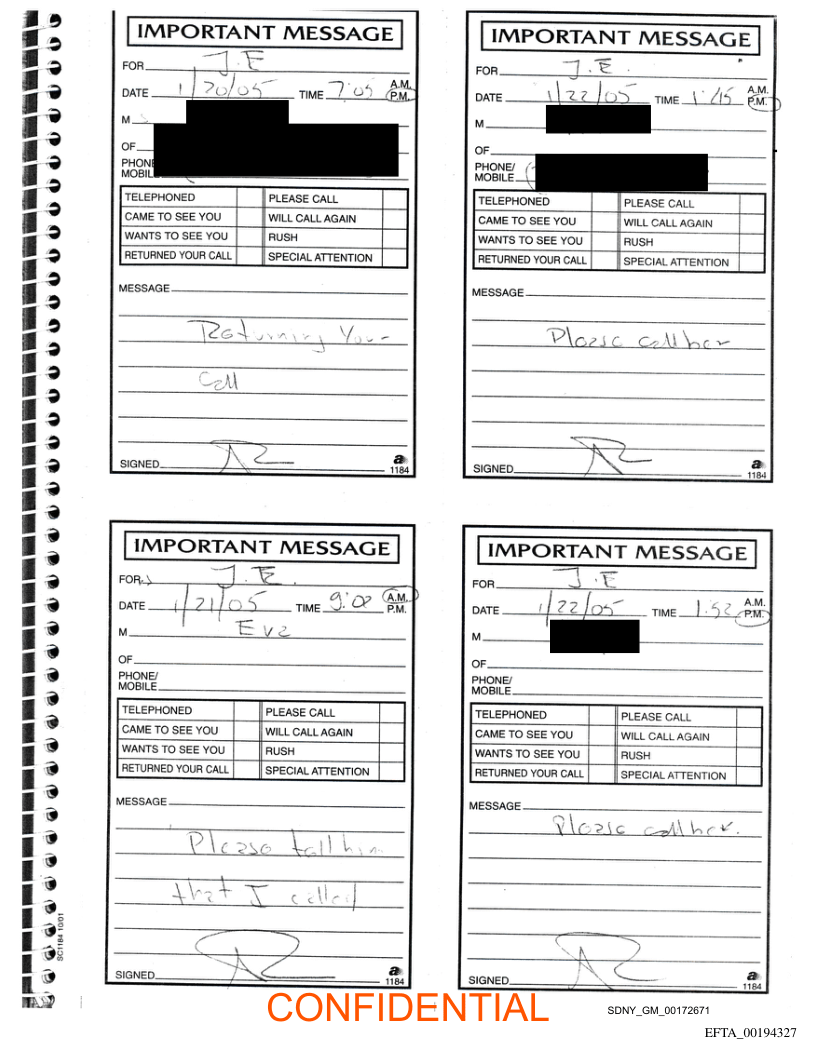 IMPORTANT MESSAGE
FOR J.E
DATE 1/20/05 TIME 7:05 A.M. P.M.
M s
OF
PHONE/
MOBILE
TELEPHONED PLEASE CALL
CAME TO SEE YOU WILL CALL AGAIN
WANTS TO SEE YOU RUSH
RETURNED YOUR CALL SPECIAL ATTENTION
MESSAGE
Returning Your
Call
SIGNED
a
1184
IMPORTANT MESSAGE
FOR J.E.
DATE 1/22/05 TIME 1:15 A.M. P.M.
M
OF
PHONE/
MOBILE (
TELEPHONED PLEASE CALL
CAME TO SEE YOU WILL CALL AGAIN
WANTS TO SEE YOU RUSH
RETURNED YOUR CALL SPECIAL ATTENTION
MESSAGE
Please call her
SIGNED
a
1184
IMPORTANT MESSAGE
FOR J.E.
DATE 1/21/05 TIME 9:02 A.M. P.M.
M Eva
OF
PHONE/
MOBILE
TELEPHONED PLEASE CALL
CAME TO SEE YOU WILL CALL AGAIN
WANTS TO SEE YOU RUSH
RETURNED YOUR CALL SPECIAL ATTENTION
MESSAGE
Please tell him
that I called
SIGNED
a
1184
IMPORTANT MESSAGE
FOR J.E
DATE 1/22/05 TIME 1:52 A.M. P.M.
M
OF
PHONE/
MOBILE
TELEPHONED PLEASE CALL
CAME TO SEE YOU WILL CALL AGAIN
WANTS TO SEE YOU RUSH
RETURNED YOUR CALL SPECIAL ATTENTION
MESSAGE
Please call her.
SIGNED
a
1184
SC1184 10/01
CONFIDENTIAL
SDNY_GM_00172671
EFTA_00194327